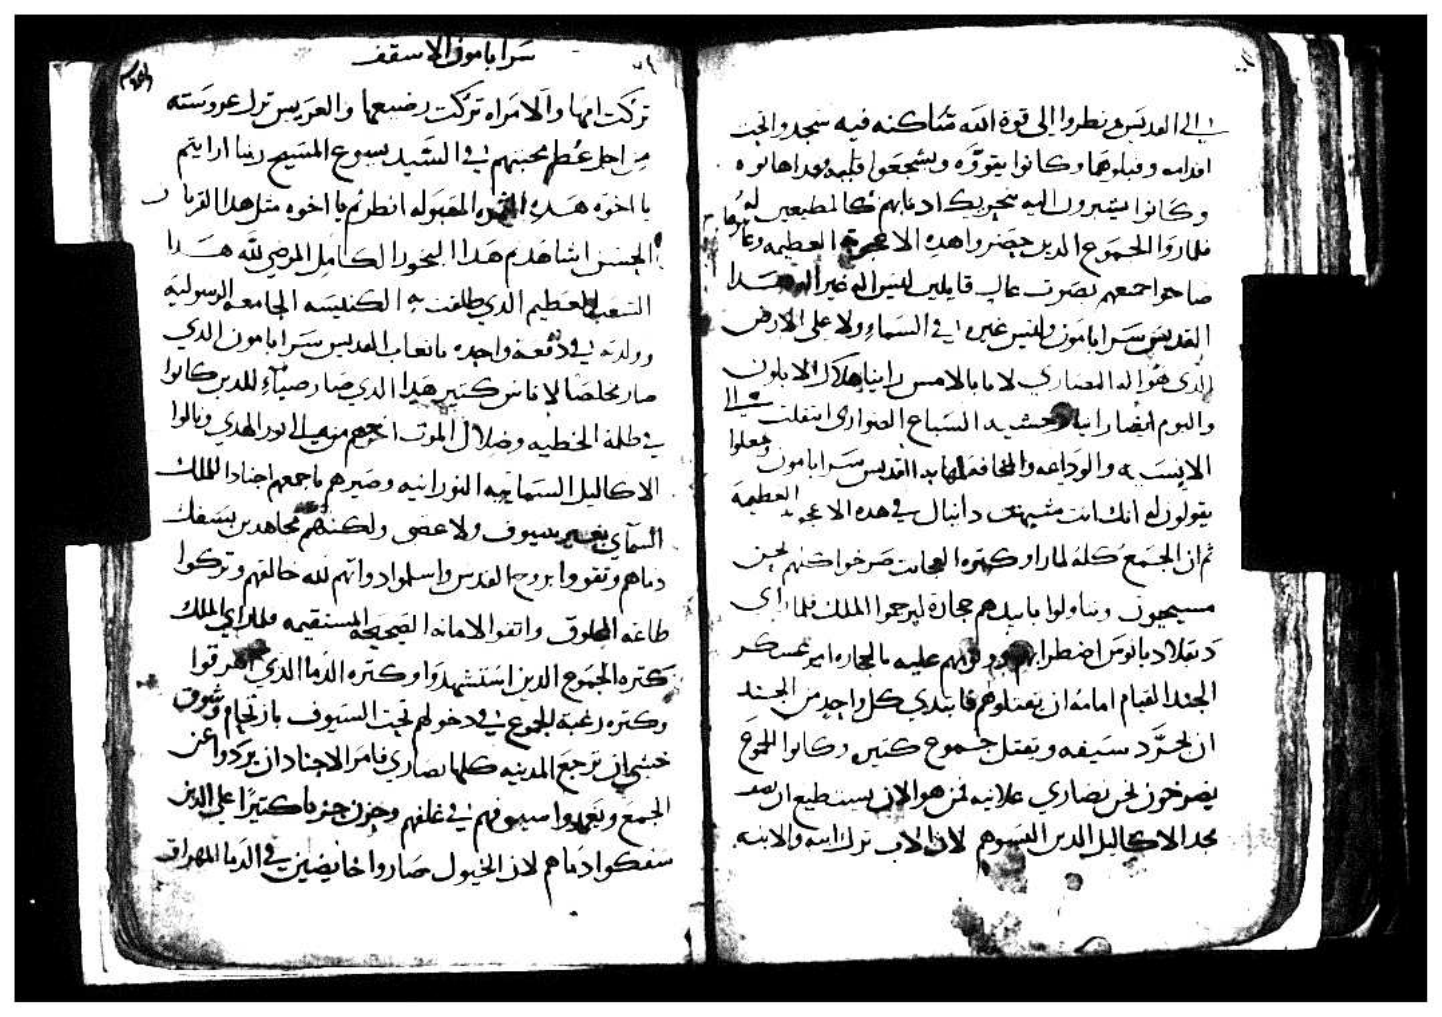 الي القديس ونظروا الي قوة الله شاكنه فيه سجدوا تحت
اقدامه وقبلوهما وكانوا يقووه ويشجعوا قلبه
وكانوا يشيرون اليه بتحريك ادنابهم كالمطيعين له
فلما راوا الجموع الدين حضروا هده الاعجوبة العظيمه
صاحوا جميعهم بصوت عال قايلين ليس اله غير اله هدا
القديس سرابامون وليس غيره في السماء ولا على الارض
الدي هو اله النصاري لاننا بالامس راينا هلاك الابلون
واليوم ايضا راينا السباع الضواري انتقلت الي
الانيسه والوداعه والمخافه لهدا القديس سرابامون وجعلوا
يقولون له انك انت مشبهت دانيال في هده الاعجوبه العظيمه
ثم ان الجمع كله لما راو كتره العجايب صرخوا كلهم نحن
مسيحيون وتناولوا بايديهم حجارة ليرجموا الملك فلما راي
دقلاديانوس اضطرابهم عليه بالحجاره امر عسكر
الجند القيام امامه ان يقتلوهم فابتدي كل واحد من الجند
ان يجرد سيفه ويقتل جموع كتير وكانوا الجموع
يصرخون نحن نصاري علانيه فمن هو الان يستطيع ان يصف
مجد الاكاليل الدين لبسوهم لان الاب ترك ابنه والابنه
سرابامون الاسقف
تركت امها والامراه تركت رضيعها والعريس ترك عروسته
من اجل عظم محبتهم في السيد يسوع المسيح ربنا ارايتم
يا اخوه هده الثمره المقبوله انظرتم يا اخوه مثل هدا القربان
الحسن اشاهدتم هدا البخور الكامل المرضي لله هدا
الشعب العظيم الدي طلقت به الكنيسه الجامعه الرسوليه
وولدته في دفعة واحده باتعاب القديس سرابامون الدي
صار مخلصا لاناس كتير هدا الدي صار ضياء للدين كانوا
في ظلمة الخطيه وضلال الموت اخرجهم منه الي نور الهدي ونالوا
الاكاليل السماييه النورانيه وصيرهم باجمعهم اجنادا للملك
السماي بغير سيوف ولا عصي ولكنهم مجاهدين بسفك
دماهم وتقووا بروح القدس واسلموا دواتهم لله خالقهم وتركوا
طاعة المخلوق واتقوا الامانه الصحيحه المستقيمه فلما راي الملك
كتره الجموع الدين استشهدوا وكتره الدما الدي اهرقوا
وكتره رغبة الجموع في دخولهم تحت السيوف بازدحام وشوق
خشي ان ترجع المدينه كلها نصاري فامر الاجناد ان يردوا عن
الجمع ويغمدوا سيوفهم في غلفهم وحزن حزنا كتيرا على الدين
سفكوا دماهم لان الخيول صاروا خايضين في الدما المهراق